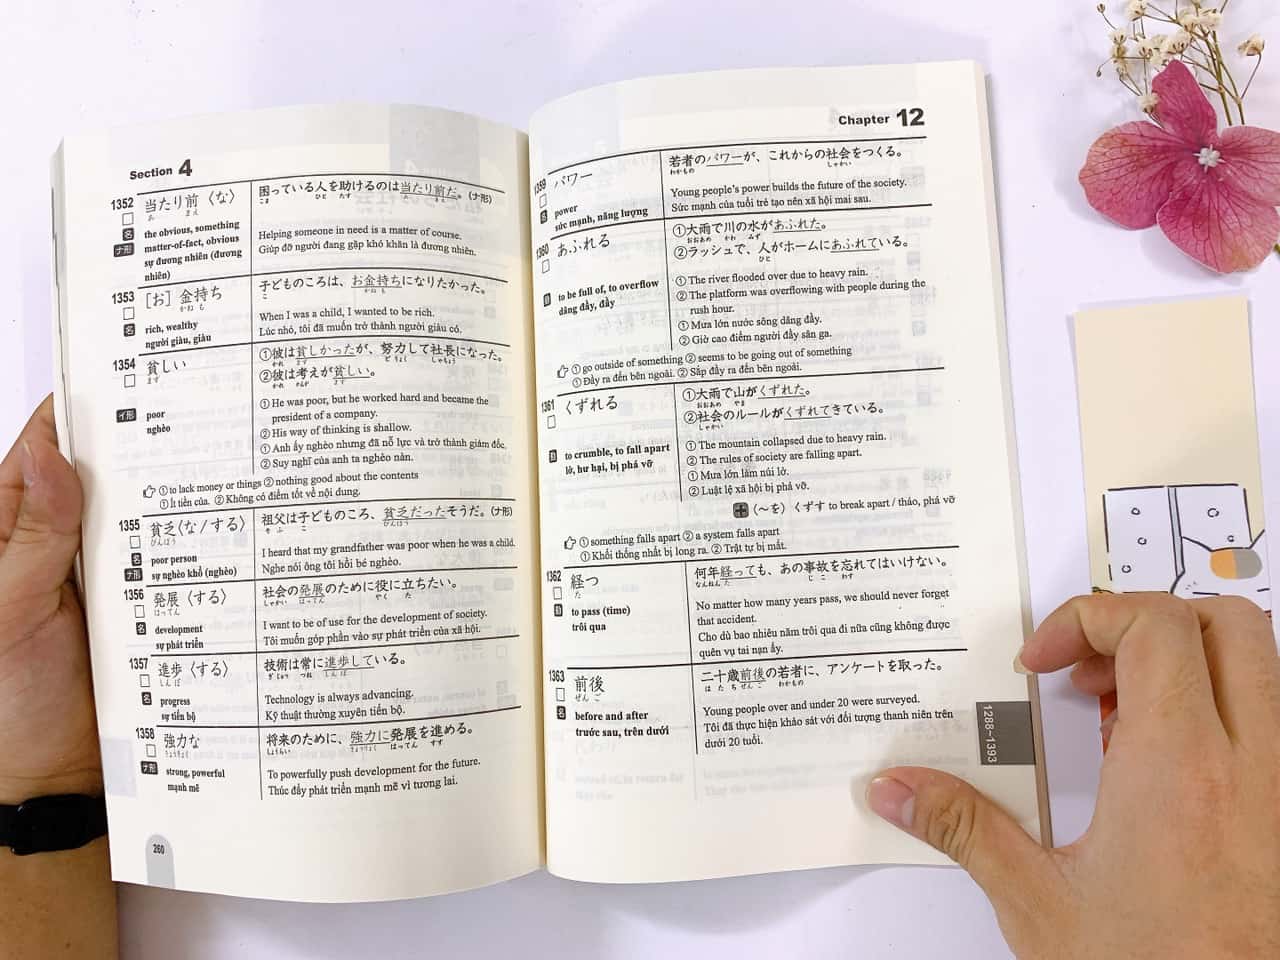 Section 4
1352 当たり前〈な〉 困っている人を助けるのは当たり前だ。(ナ形)
あ まえ こま ひと たす あ まえ
名 the obvious, something Helping someone in need is a matter of course.
ナ形 matter-of-fact, obvious Giúp đỡ người đang gặp khó khăn là đương nhiên.
sự đương nhiên (đương
nhiên)
1353 [お]金持ち 子どものころは、お金持ちになりたかった。
かね も こ かねも
名 rich, wealthy When I was a child, I wanted to be rich.
người giàu, giàu Lúc nhỏ, tôi đã muốn trở thành người giàu có.
1354 貧しい ①彼は貧しかったが、努力して社長になった。
まず かれ まず どりょく しゃちょう
②彼は考えが貧しい。
かれ かんが まず
イ形 poor ① He was poor, but he worked hard and became the
nghèo president of a company.
② His way of thinking is shallow.
① Anh ấy nghèo nhưng đã nỗ lực và trở thành giám đốc.
② Suy nghĩ của anh ta nghèo nàn.
① to lack money or things ② nothing good about the contents
① Ít tiền của. ② Không có điểm tốt về nội dung.
1355 貧乏〈な/する〉 祖父は子どものころ、貧乏だったそうだ。(ナ形)
びんぼう そふ こ びんぼう
名 poor person I heard that my grandfather was poor when he was a child.
ナ形 sự nghèo khổ (nghèo) Nghe nói ông tôi hồi bé nghèo.
1356 発展〈する〉 社会の発展のために役に立ちたい。
はってん しゃかい はってん やく た
名 development I want to be of use for the development of society.
sự phát triển Tôi muốn góp phần vào sự phát triển của xã hội.
1357 進歩〈する〉 技術は常に進歩している。
しんぽ ぎじゅつ つね しんぽ
名 progress Technology is always advancing.
sự tiến bộ Kỹ thuật thường xuyên tiến bộ.
1358 強力な 将来のために、強力に発展を進める。
きょうりょく しょうらい きょうりょく はってん すす
ナ形 strong, powerful To powerfully push development for the future.
mạnh mẽ Thúc đẩy phát triển mạnh mẽ vì tương lai.
260
Chapter 12
1359 パワー 若者のパワーが、これからの社会をつくる。
わかもの しゃかい
名 power Young people's power builds the future of the society.
sức mạnh, năng lượng Sức mạnh của tuổi trẻ tạo nên xã hội mai sau.
1360 あふれる ①大雨で川の水があふれた。
おおあめ かわ みず
②ラッシュで、人がホームにあふれている。
ひと
動 to be full of, to overflow ① The river flooded over due to heavy rain.
dâng đầy, đầy ② The platform was overflowing with people during the
rush hour.
① Mưa lớn nước sông dâng đầy.
② Giờ cao điểm người đầy sân ga.
① go outside of something ② seems to be going out of something
① Đầy ra đến bên ngoài. ② Sắp đầy ra đến bên ngoài.
1361 くずれる ①大雨で山がくずれた。
おおあめ やま
②社会のルールがくずれてきている。
しゃかい
動 to crumble, to fall apart ① The mountain collapsed due to heavy rain.
lở, hư hại, bị phá vỡ ② The rules of society are falling apart.
① Mưa lớn làm núi lở.
② Luật lệ xã hội bị phá vỡ.
(〜を)くずす to break apart / tháo, phá vỡ
① something falls apart ② a system falls apart
① Khối thống nhất bị long ra. ② Trật tự bị mất.
1362 経つ 何年経っても、あの事故を忘れてはいけない。
た なんねん た じこ わす
動 to pass (time) No matter how many years pass, we should never forget
trôi qua that accident.
Cho dù bao nhiêu năm trôi qua đi nữa cũng không được
quên vụ tai nạn ấy.
1363 前後 二十歳前後の若者に、アンケートを取った。
ぜんご はたち ぜんご わかもの
名 before and after Young people over and under 20 were surveyed.
trước sau, trên dưới Tôi đã thực hiện khảo sát với đối tượng thanh niên trên
dưới 20 tuổi.
1288~1393